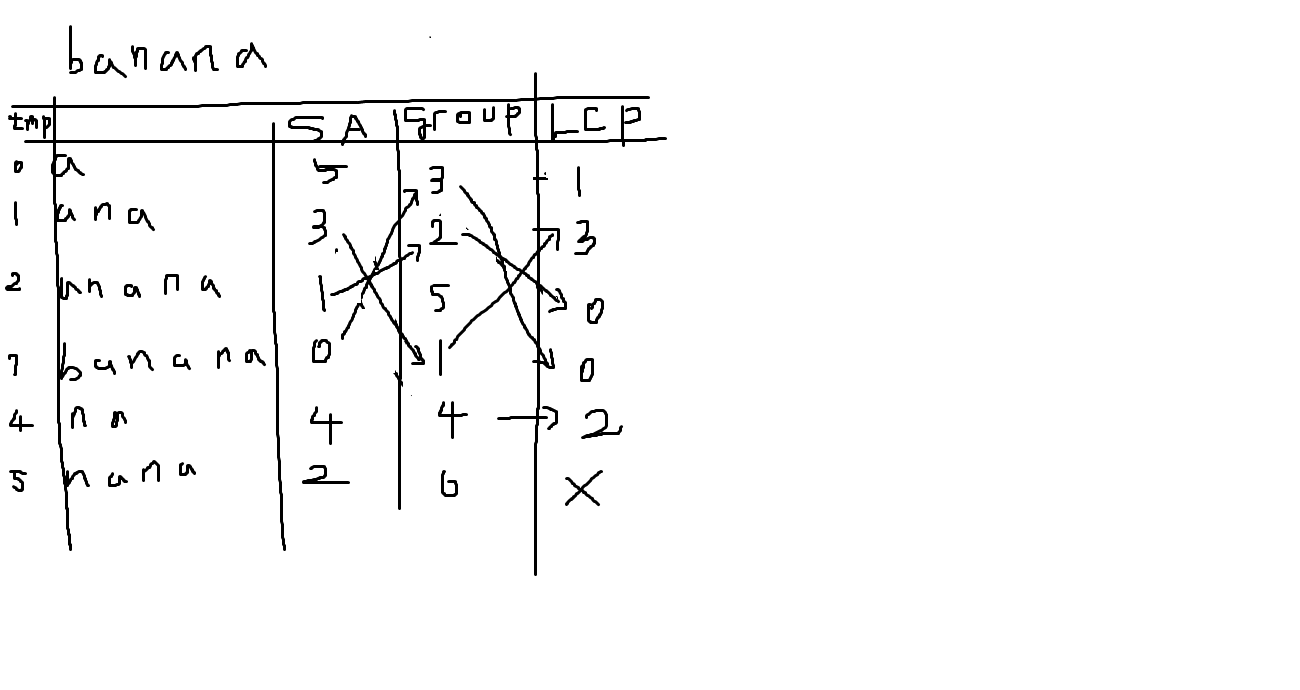 banana
tmp SA group LCP
0 a 5 3 1
1 ana 3 2 3
2 anana 1 5 0
7 banana 0 1 0
4 na 4 4 2
5 nana 2 6 X